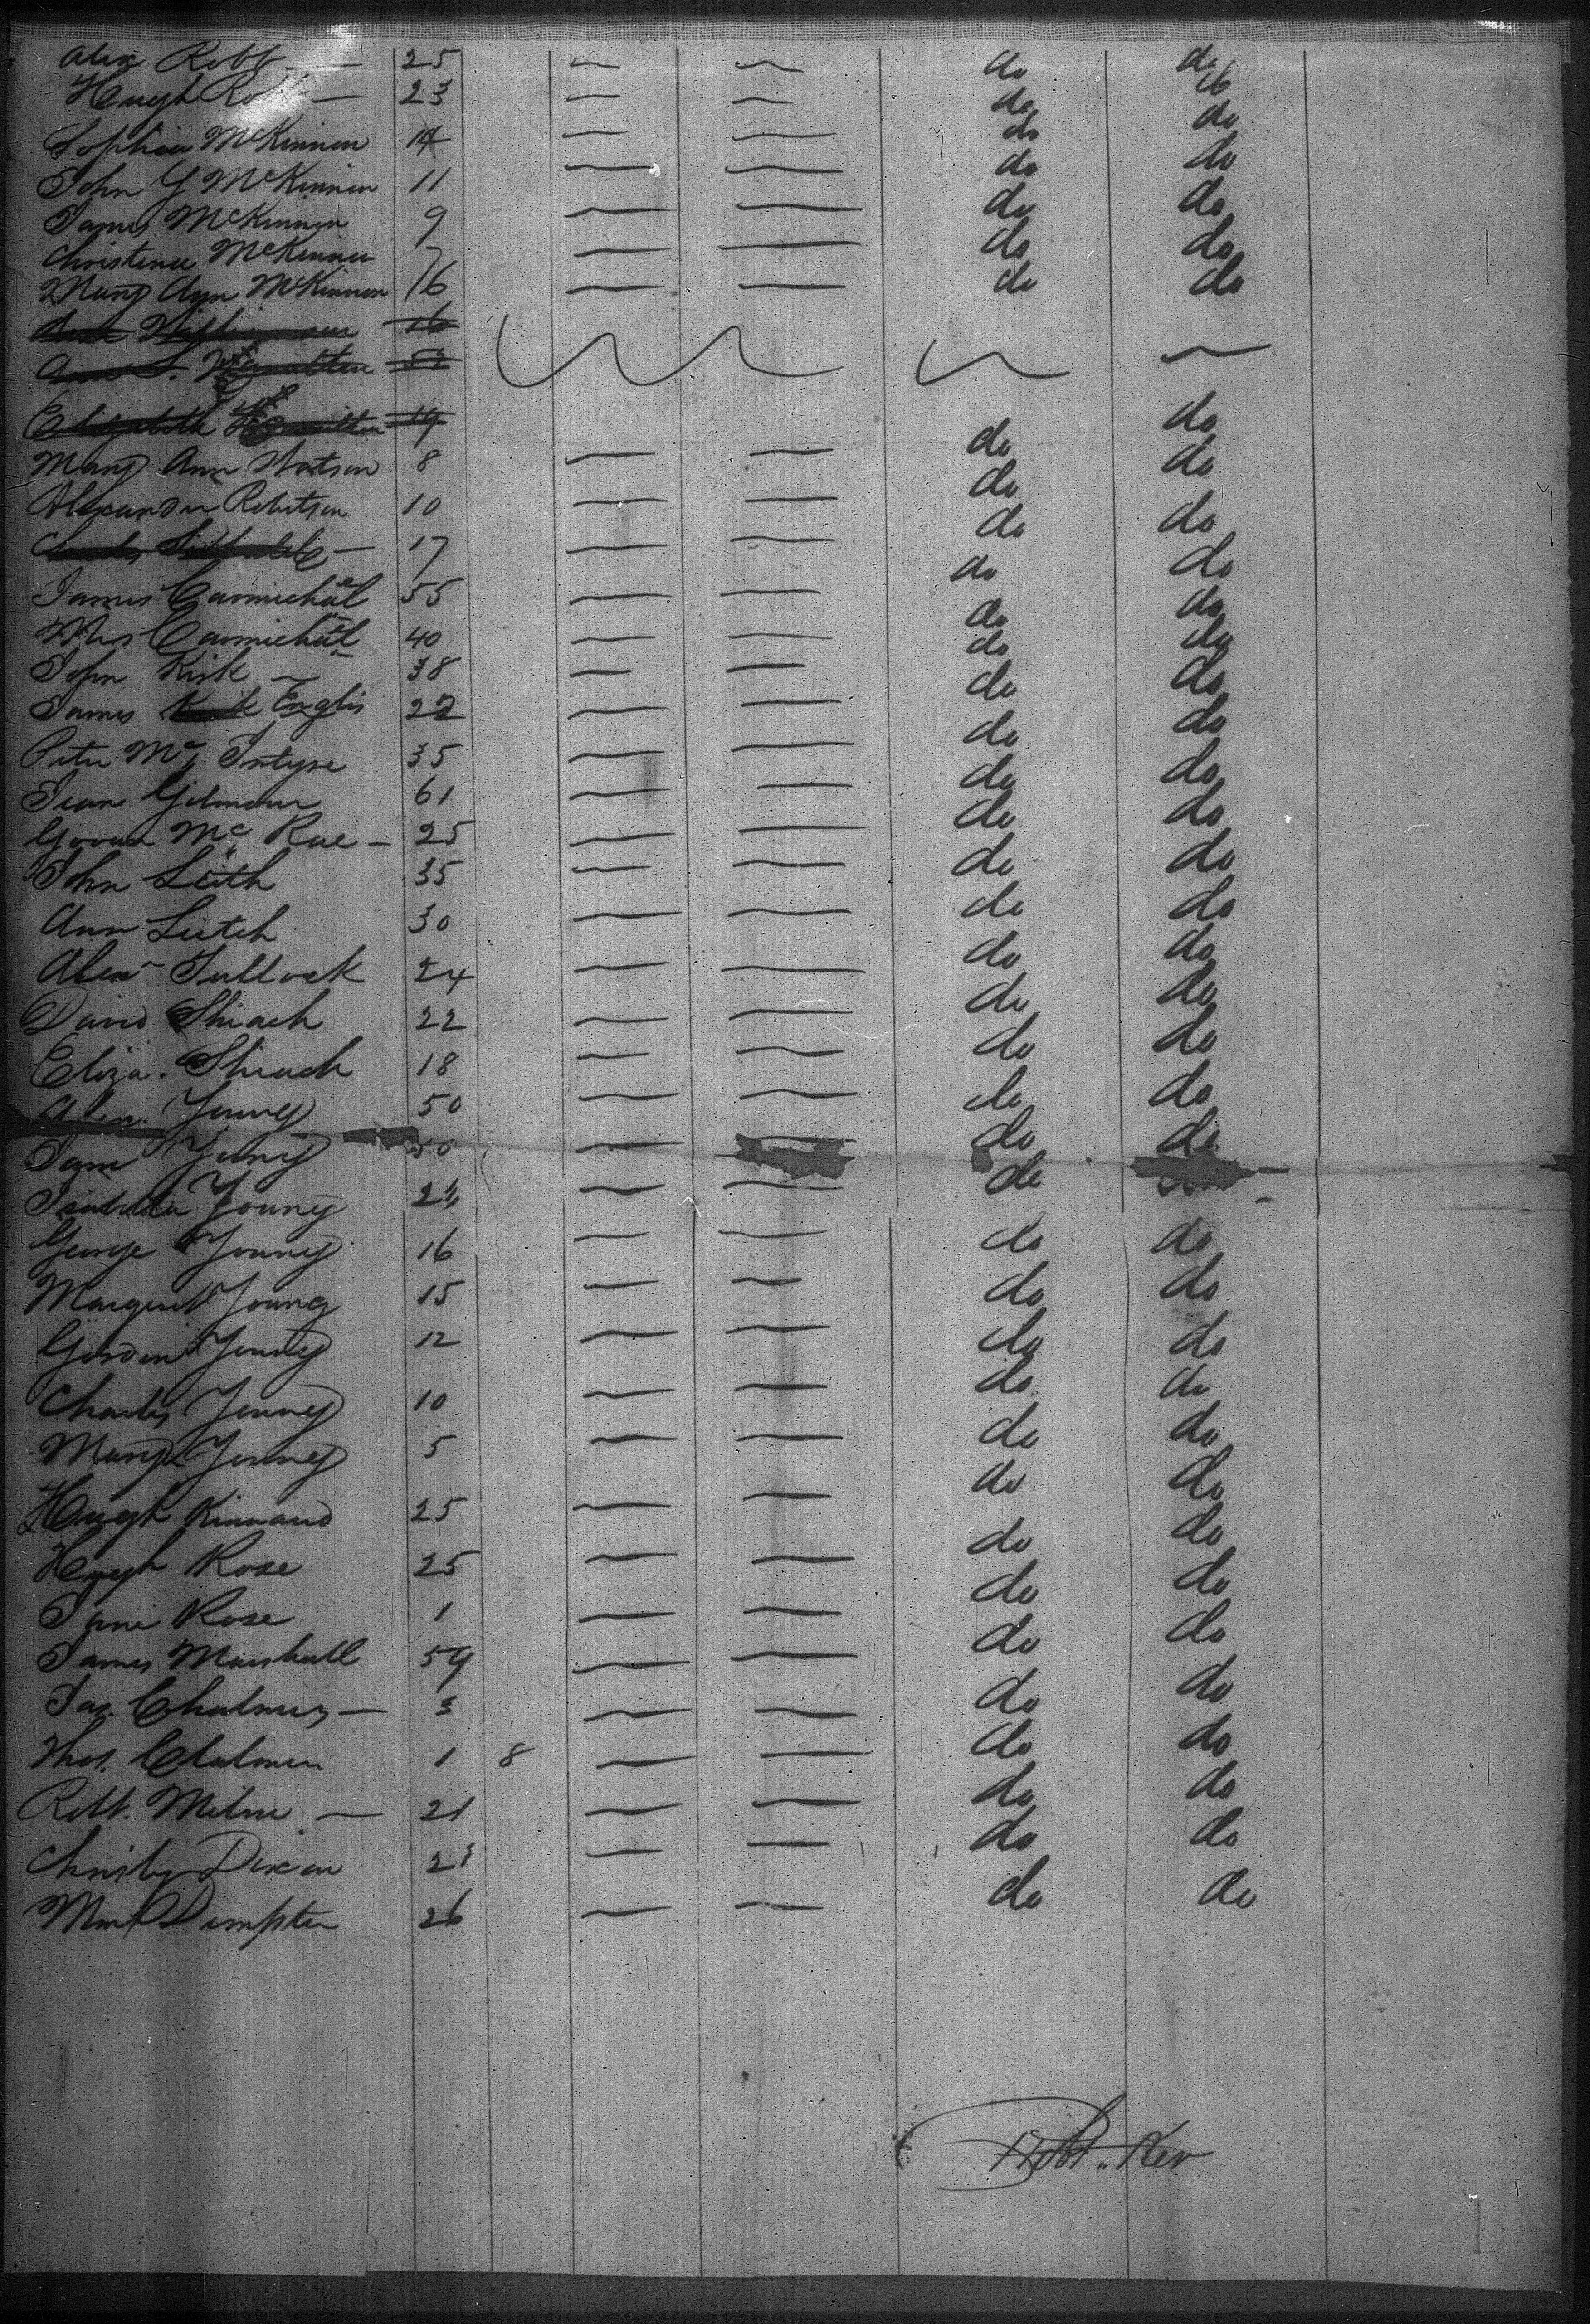 Alex Robb — 25 — — do do
Hugh — 23 — — do do
Sophia McKinnon 14 — — do do
John G McKinnon 11 — — do do
James McKinnon 9 — — do do
Christena McKinnon 7 — — do do
Mary Ann McKinnon 16 — — do do
16
Ann S. Hamilton 52
Elizabeth Hamilton 19 do
Mary Ann Watson 8 — — do do
Alexander Robertson 10 — — do do
Charles — 17 — — do do
James Carmichael 55 — — do do
Mrs Carmichael 40 — — do do
John Kirk — 38 — — do do
James Kirk Englis 22 — — do do
Peter Mc Intyre 35 — — do do
Jean Gilmour 61 — — do do
Govan Mc Rae — 25 — — do do
John Leith 35 — — do do
Ann Leitch 30 — — do do
Alexr Tullock 24 — — do do
David Shiach 22 — — do do
Eliza. Shiach 18 — — do do
Alex. Young 50 — — do do
Jane Young 50 — — do do
Isabella Young — — do
George Young 16 — — do do
Margaret Young 15 — — do do
Gordon Young 12 — — do do
Charles Young 10 — — do do
Mary Young 5 — — do do
Hugh Kinnaird 25 — — do do
Hugh Rose 25 — — do do
Jane Rose 1 — — do do
James Marshall 59 — — do do
Jas. Chalmers — 3 — — do do
Thos. Chalmers 1 8 — — do do
Robt. Milne — 21 — — do do
Christy Dixon 23 — — do do
Dempster 26 — — do do
Robt. Ker